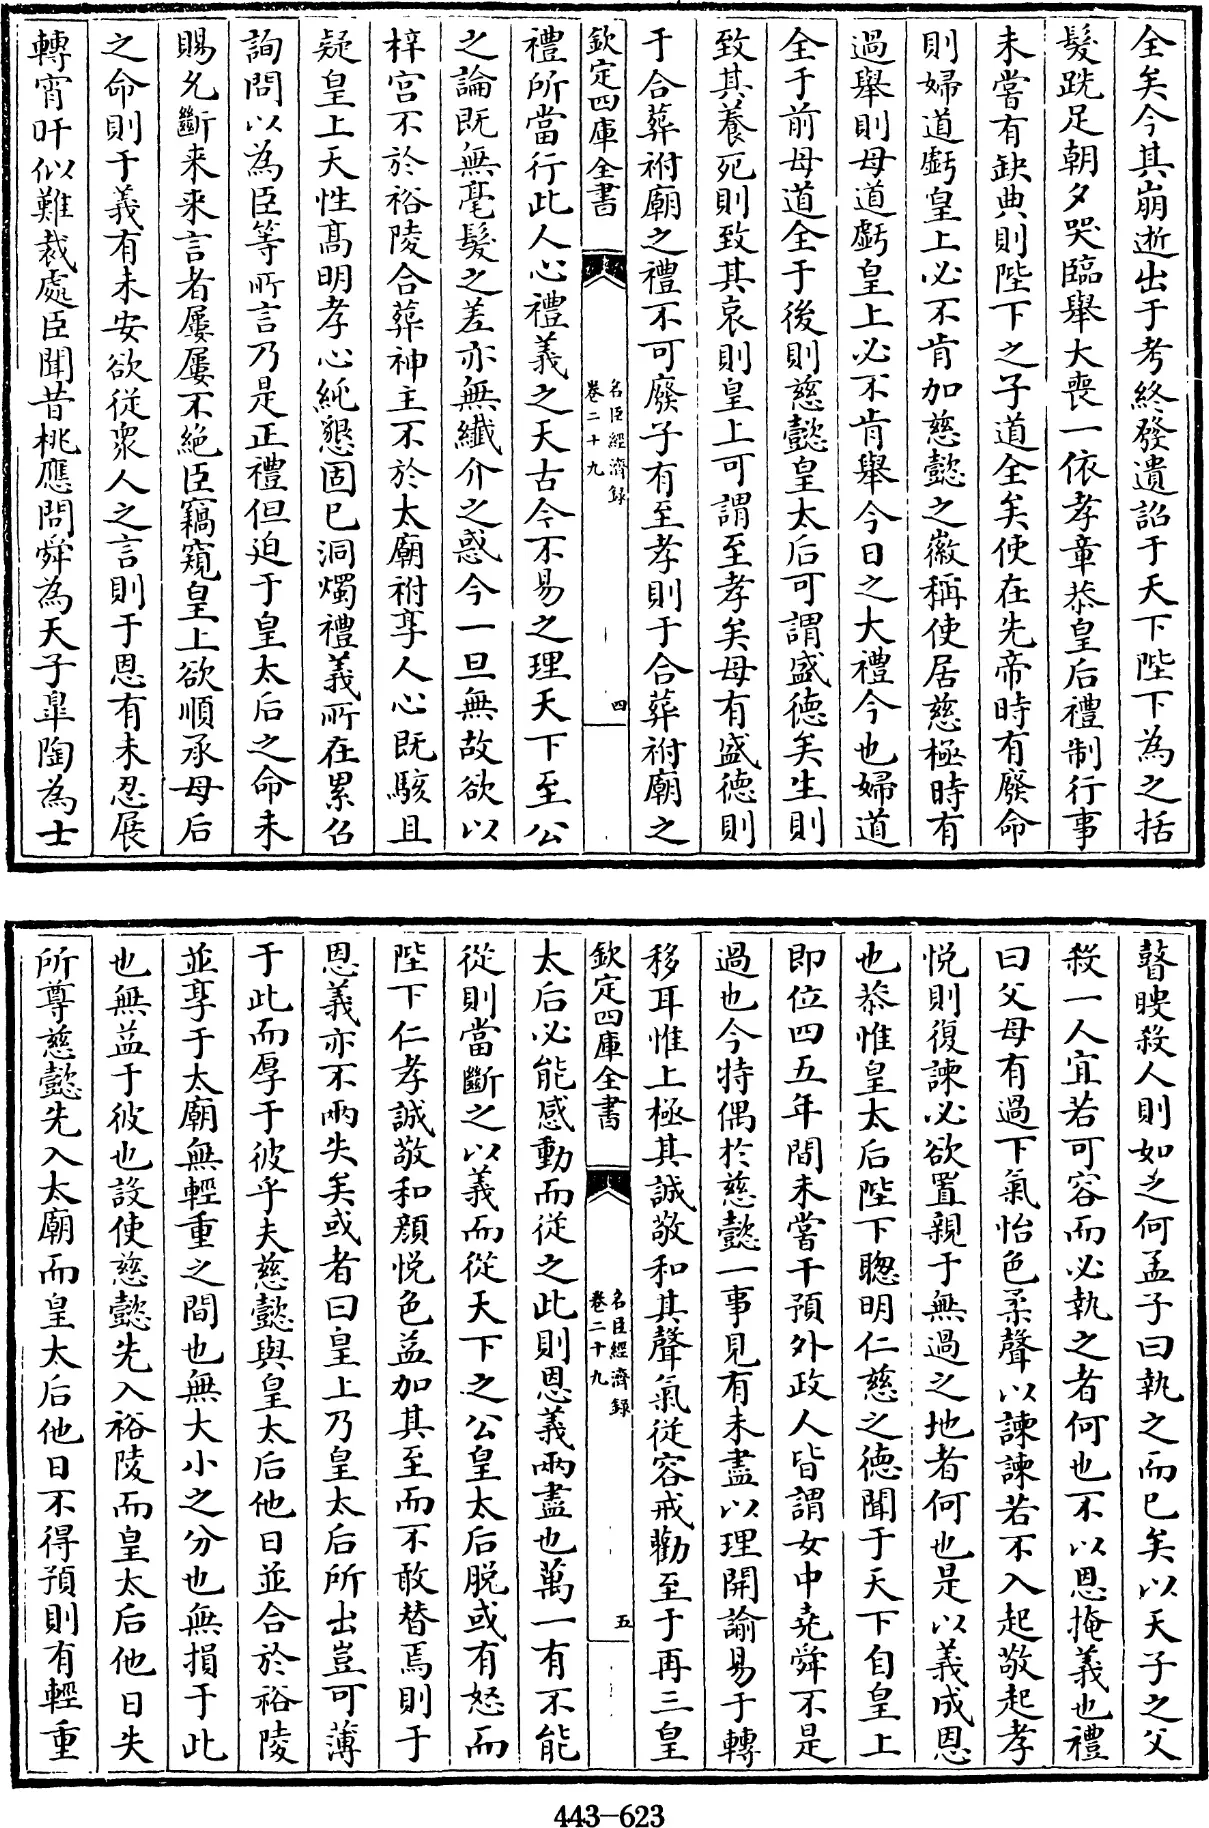 全矣今其崩逝出于考終發遺詔于天下陛下為之括
髮跣足朝夕哭臨舉大喪一依孝章恭皇后禮制行事
未嘗有缺典則陛下之子道全矣使在先帝時有廢命
則婦道虧皇上必不肯加慈懿之徽稱使居慈極時有
過舉則母道虧皇上必不肯舉今日之大禮今也婦道
全于前母道全于後則慈懿皇太后可謂盛德矣生則
致其養死則致其哀則皇上可謂至孝矣母有盛德則
于合葬祔廟之禮不可廢子有至孝則于合葬祔廟之
欽定四庫全書
名臣經濟録
卷二十九
四
禮所當行此人心禮義之天古今不易之理天下至公
之論既無毫髮之差亦無纖介之惑今一旦無故欲以
梓宫不於裕陵合葬神主不於太廟祔享人心既駭且
疑皇上天性髙明孝心純懇固已洞燭禮義所在累召
詢問以為臣等所言乃是正禮但廹于皇太后之命未
賜允斷来来言者屢屢不絶臣竊窺皇上欲順承母后
之命則于義有未安欲從衆人之言則于恩有未忍展
轉宵旰似難裁處臣聞昔桃應問舜為天子臯陶為士
瞽瞍殺人則如之何孟子曰執之而已矣以天子之父
殺一人宜若可容而必執之者何也不以恩掩義也禮
曰父母有過下氣怡色柔聲以諫諫若不入起敬起孝
悦則復諫必欲置親于無過之地者何也是以義成恩
也恭惟皇太后陛下聰明仁慈之德聞于天下自皇上
即位四五年間未嘗干預外政人皆謂女中堯舜不是
過也今特偶於慈懿一事見有未盡以理開諭易于轉
移耳惟上極其誠敬和其聲氣從容戒勸至于再三皇
欽定四庫全書
名臣經濟録
卷二十九
五
太后必能感動而從之此則恩義兩盡也萬一有不能
從則當斷之以義而從天下之公皇太后脱或有怒而
陛下仁孝誠敬和顔悦色益加其至而不敢替焉則于
恩義亦不兩失矣或者曰皇上乃皇太后所出豈可薄
于此而厚于彼乎夫慈懿與皇太后他日並合於裕陵
並享于太廟無輕重之間也無大小之分也無損于此
也無益于彼也設使慈懿先入裕陵而皇太后他日失
所尊慈懿先入太廟而皇太后他日不得預則有輕重
443-623